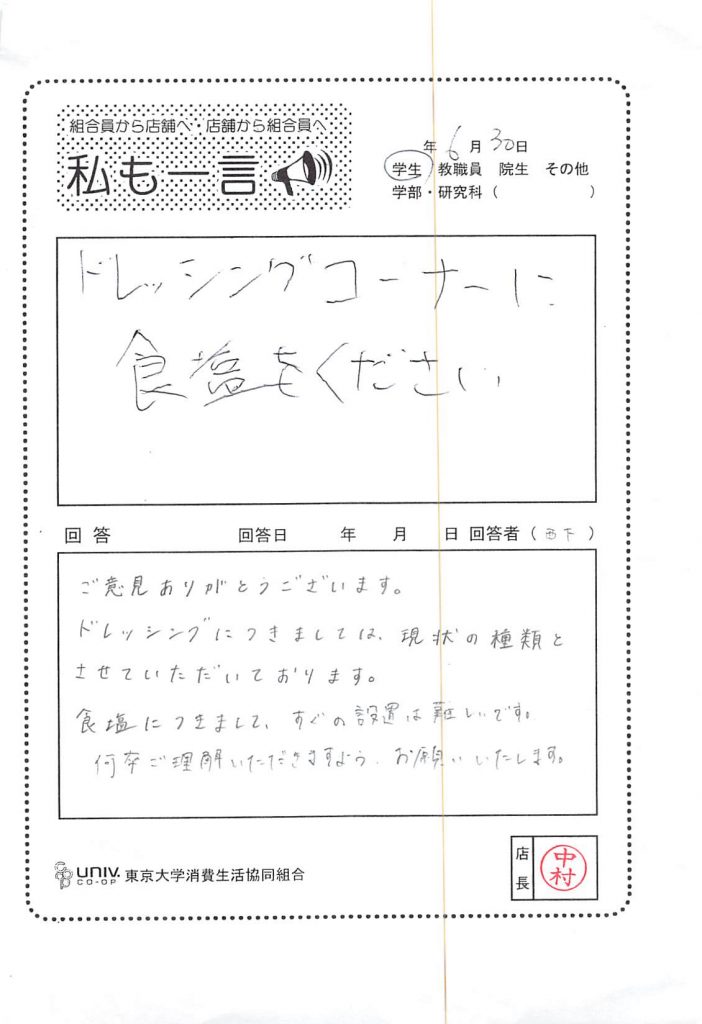 組合員から店舗へ・店舗から組合員へ
私も一言
年 6月 30日
学生 教職員 院生 その他
学部・研究科（ ）
ドレッシングコーナーに
食塩をください
回答 回答日 年 月 日 回答者（西下）
ご意見ありがとうございます。
ドレッシングにつきましては、現状の種類と
させていただいております。
食塩につきまして、すぐの設置は難しいです。
何卒ご理解いただきますよう、お願いいたします。
UNIV.
CO-OP
東京大学消費生活協同組合
店長
中村